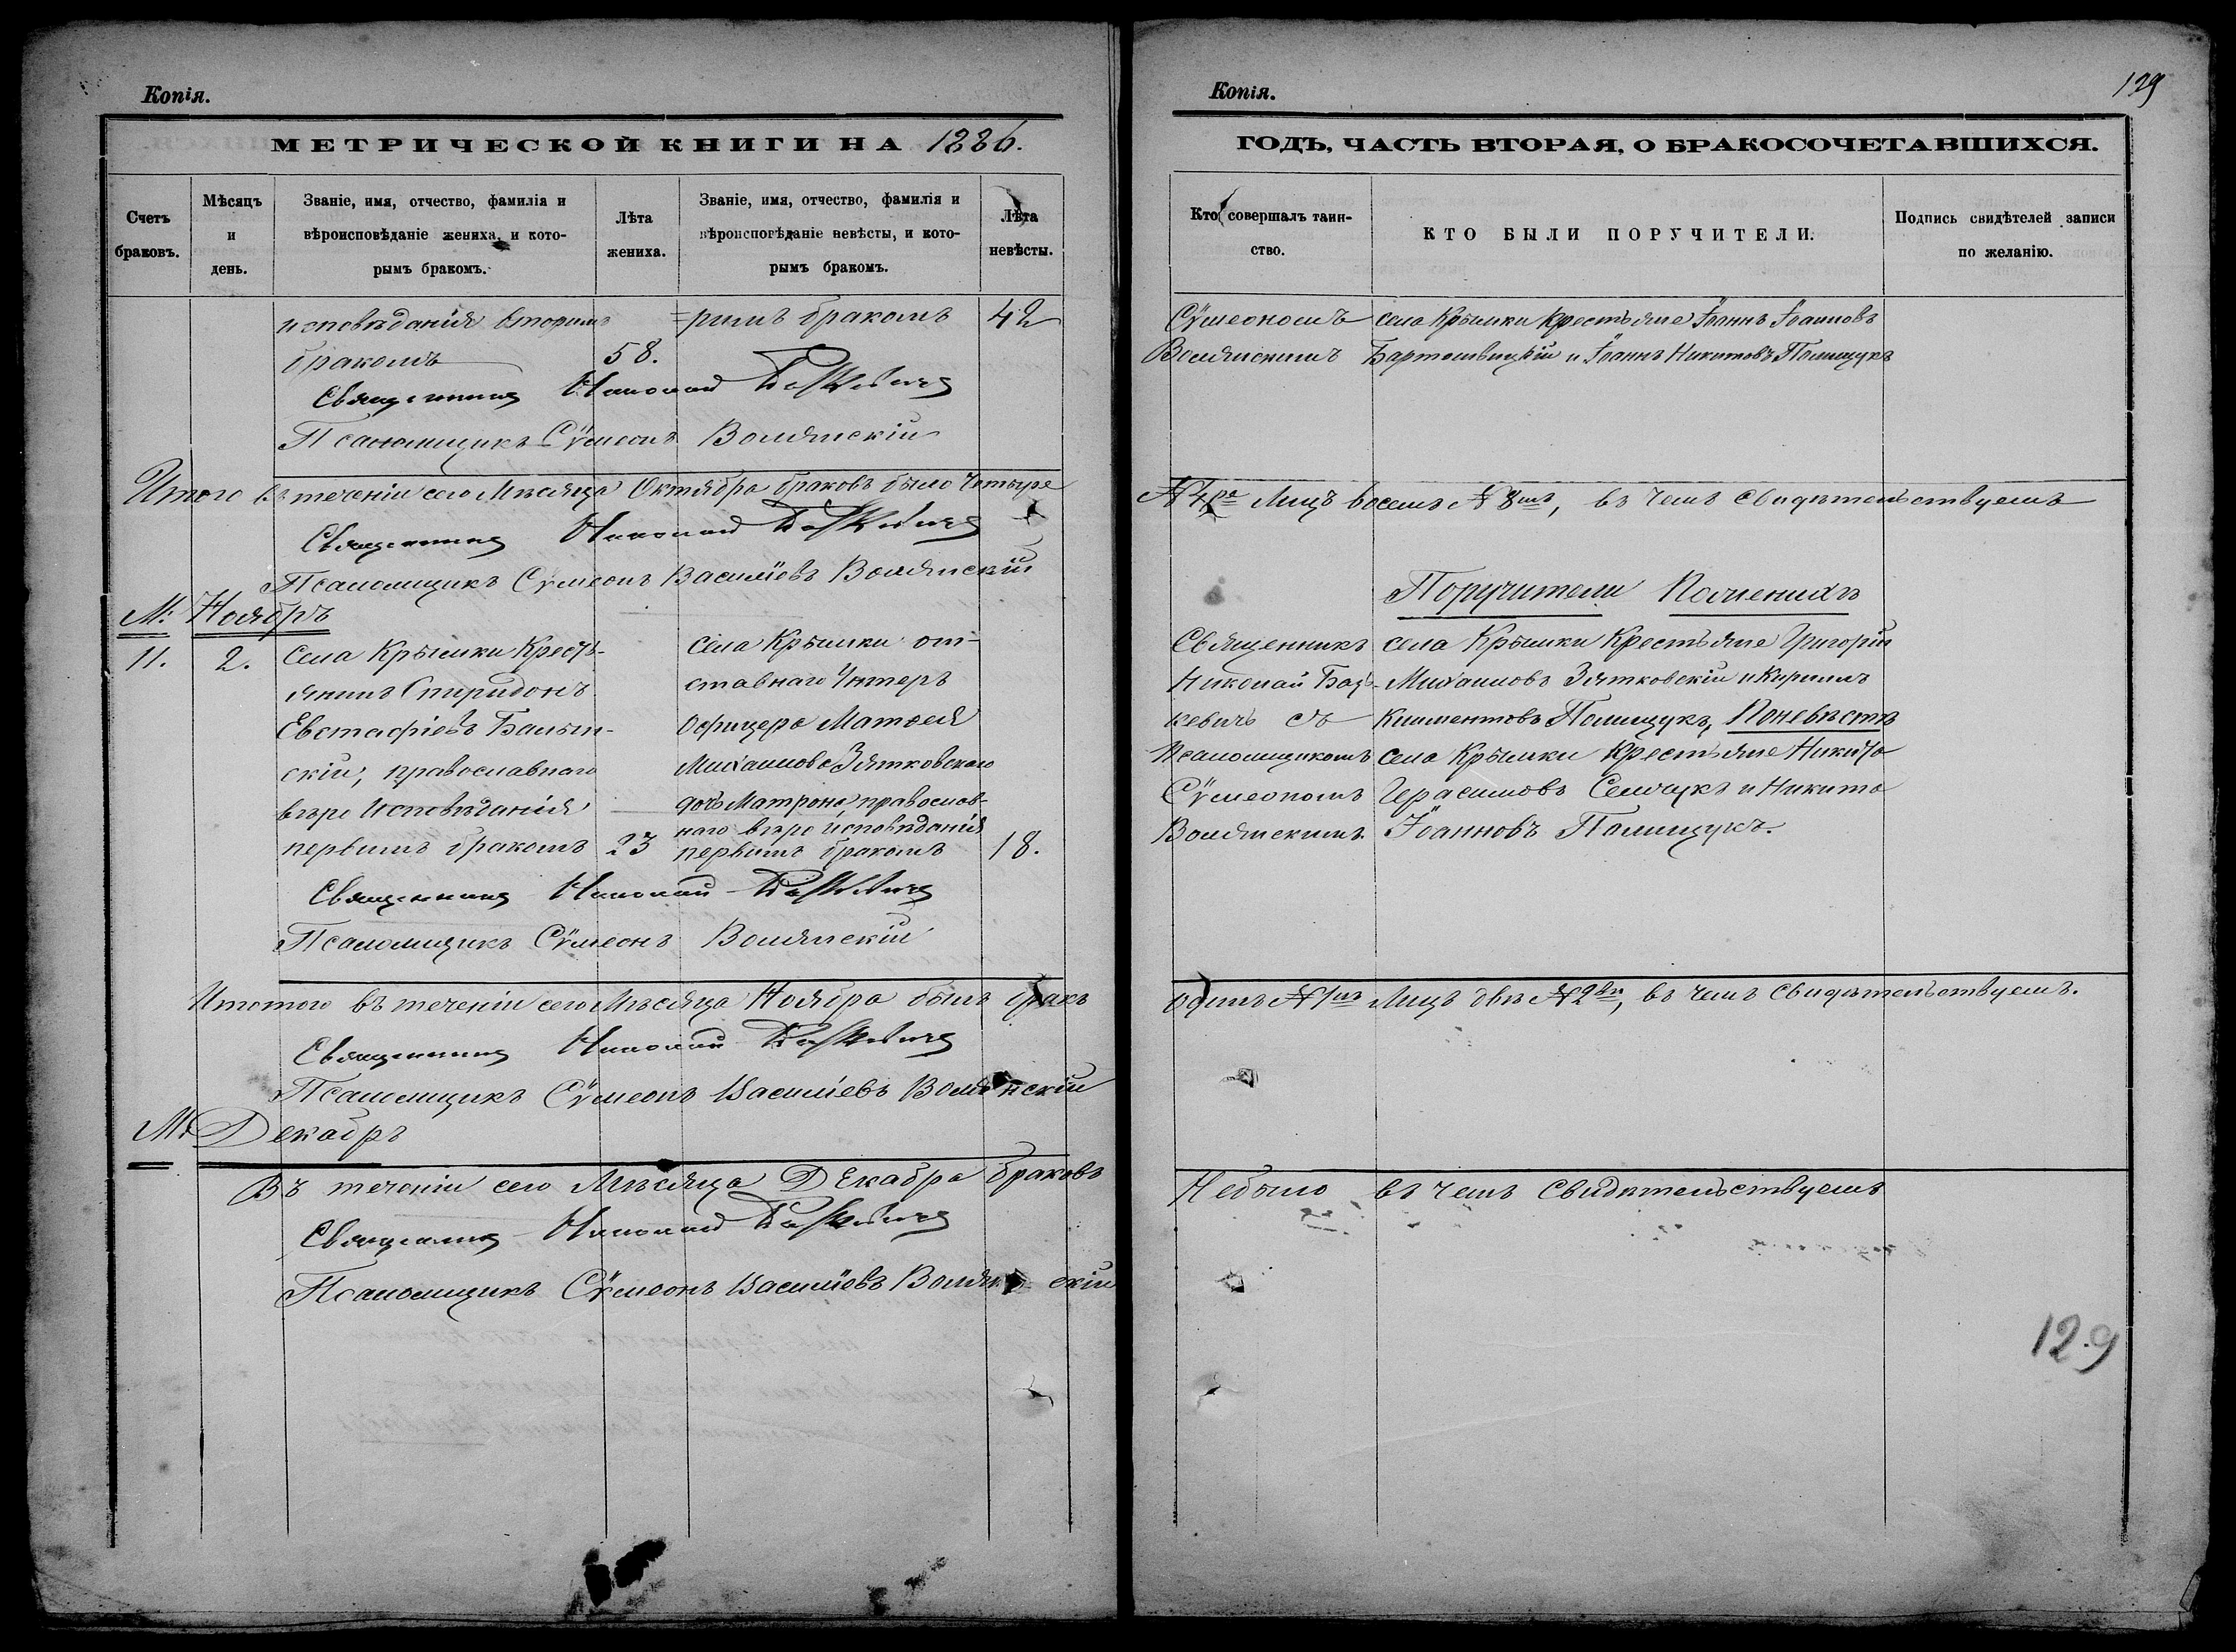 Копія.
МЕТРИЧЕСКОЙ КНИГИ НА 1886.
Счетъ браковъ.
Мѣсяцъ и день.
Званіе, имя, отчество, фамилія и вѣроисповѣданіе жениха, и которымъ бракомъ.
Лѣта жениха.
Званіе, имя, отчество, фамилія и вѣроисповѣданіе невѣсты, и которымъ бракомъ.
Лѣта невѣсты.
исповѣданія вторымъ
бракомъ 58.
=рымъ бракомъ 42
Священникъ Николай
Псаломщикъ Сѵмеонъ Волянскій
Итого въ теченіи сего Мѣсяца Октября браковъ было Четыре
Священникъ Николай
Псаломщикъ Сѵмеонъ Василіевъ Волянскій
М. Ноябрь
11. 2. Села Крымки Кресть-
янинъ Спиридонъ
Евстафіевъ
скій, православнаго
вѣро исповѣданія
первымъ бракомъ 23
Села Крымки от-
ставнаго Унтеръ
Офицера Матѳея
Михаилова Зятковскаго
дочь Матрона, православ-
наго вѣро исповѣданія
первымъ бракомъ 18.
Священникъ Николай
Псаломщикъ Сѵмеонъ Волянскій
Итотого въ теченіи сего Мѣсяца Ноября былъ бракъ
Священникъ Николай
Псаломщикъ Сѵмеонъ Василіевъ Волянскій
М. Декабрь
Въ теченіи сего Мѣсяца Декабря браковъ
Священникъ Николай
Псаломщикъ Сѵмеонъ Василіевъ Волянскій
Копія.
129
ГОДЪ, ЧАСТЬ ВТОРАЯ, О БРАКОСОЧЕТАВШИХСЯ.
Кто совершалъ таинство.
КТО БЫЛИ ПОРУЧИТЕЛИ.
Подпись свидѣтелей записи по желанію.
Сѵмеономъ
Волянскимъ
села Крымки крестьяне Іоаннъ Іоанновъ
и Іоаннъ Никитовъ Полищукъ
№ 4ре Лицъ восемь № 8мь, въ чемъ свидѣтельствуемъ
Поручители По женихѣ
Священникъ
Николай Баз-
кевичъ съ
Псаломщикомъ
Сѵмеономъ
Волянскимъ
села Крымки Крестьяне Григорій
Михаиловъ Зятковскій и Кириллъ
Климентовъ Полищукъ, По невѣстѣ
села Крымки Крестьяне Никита
Герасимовъ Семчукъ и Никита
Іоанновъ Полищукъ.
одинъ № 1нъ Лицъ двѣ № 2вѣ, въ чемъ свидѣтельствуемъ.
Небыло въ чемъ свидѣтельствуемъ
129